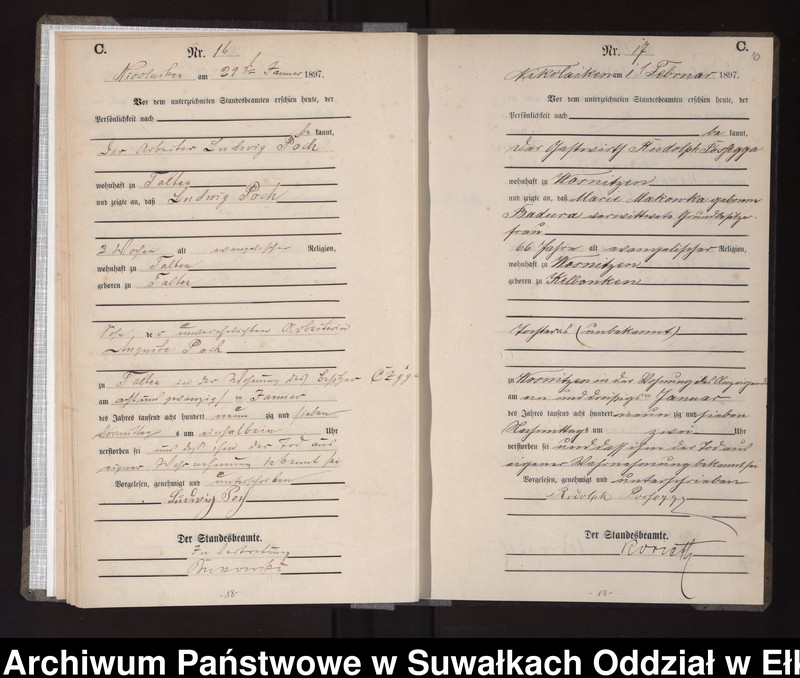 C.
Nr. 16
Nicolaiken am 29ten Januar 1897.
Vor dem unterzeichneten Standesbeamten erschien heute, der
Persönlichkeit nach
be kannt,
der Arbeiter Ludwig Poch
wohnhaft zu Talten
und zeigte an, daß Ludwig Poch
3 Wochen alt evangelischer Religion,
wohnhaft zu Talten
geboren zu Talten
Sohn der unverehelichten Arbeiterin
Auguste Poch
zu Talten in der Wohnung des Besitzer
am acht und zwanzigsten Januar
des Jahres tausend acht hundert neun zig und sieben
Vormittags um einhalbein Uhr
verstorben sei und daß ihm der Tod aus
eigener Wahrnehmung bekannt sei
Vorgelesen, genehmigt und unterschrieben
Ludwig
Der Standesbeamte.
In Vertretung
-18-
Nr. 17
C.
10
Nikolaiken am 1 Februar 1897.
Vor dem unterzeichneten Standesbeamten erschien heute, der
Persönlichkeit nach
be kannt,
der Gastwirth Rudolph
wohnhaft zu Wosnitzen
und zeigte an, daß Marie Makowka geborene
Badura verwittwete Grundbesitzer-
frau
66 Jahre alt evangelischer Religion,
wohnhaft zu Wosnitzen
geboren zu Kelbonken
Tochter des (unbekannt)
zu Wosnitzen in der Wohnung des Anzeigenden
am ein und dreißigsten Januar
des Jahres tausend acht hundert neun zig und sieben
Nachmittags um zwei Uhr
verstorben sei und dass ihm der Tod aus
eigener Wahrnehmung bekannt sei
Vorgelesen, genehmigt und unterschrieben
Rudolph
Der Standesbeamte.
-19-
Archiwum Państwowe w Suwałkach Oddział w Ełk